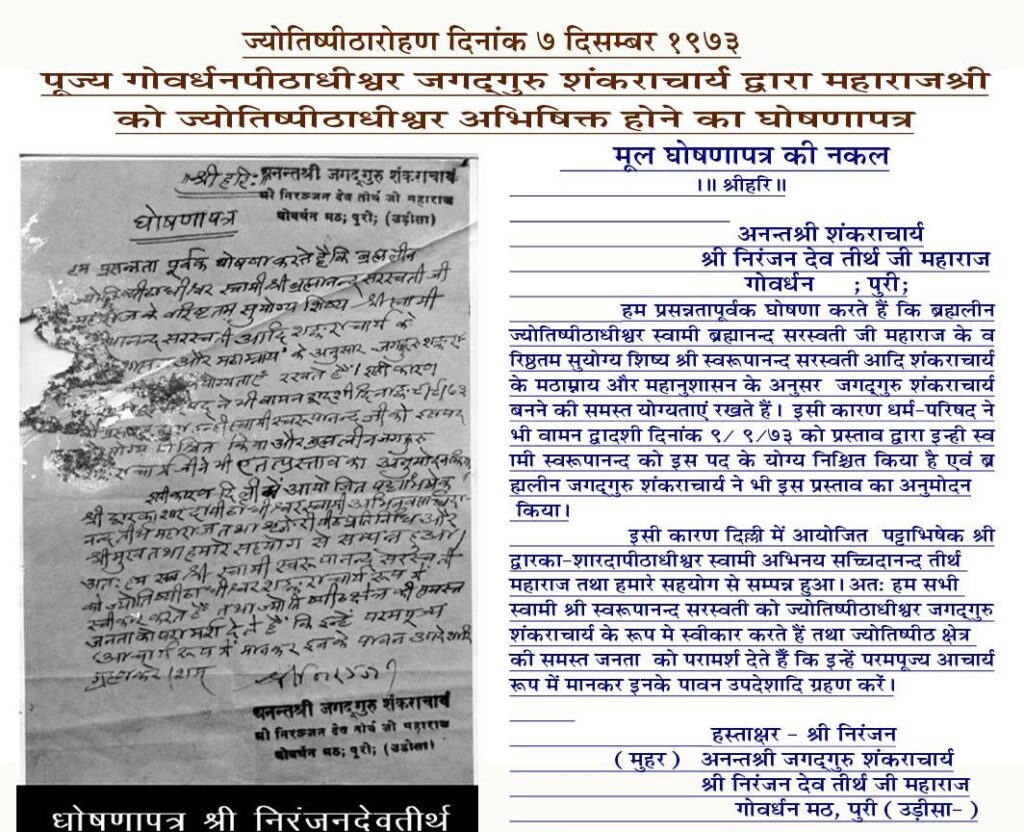 ज्योतिष्पीठारोहण दिनांक ७ दिसम्बर १९७३
पूज्य गोवर्धनपीठाधीश्वर जगद्‌गुरु शंकराचार्य द्वारा महाराजश्री
को ज्योतिष्पीठाधीश्वर अभिषिक्त होने का घोषणापत्र
श्री हरि:
अनन्तश्री जगद्‌गुरु शंकराचार्य
श्री निरञ्जन देव तीर्थ जी महाराज
गोवर्धन मठ; पुरी; (उड़ीसा)
घोषणापत्र
हम प्रसन्नता पूर्वक घोषणा करते हैं कि ब्रह्मलीन
स्वामी श्री ब्रह्मानन्द सरस्वती जी
महाराज के वरिष्ठतम सुयोग्य शिष्य श्री स्वामी
सरस्वती आदि शङ्कराचार्य के
और मठाम्नाय के अनुसार जगद्गुरु
योग्यताएं रखते हैं। इसी कारण
ने भी वामन द्वादशी दिनाङ्क
स्वामी स्वरूपानन्द जी को इस पद
निश्चित किया और ब्रह्मलीन जगद्गुरु
जी ने भी एतत्प्रस्ताव का अनुमोदन किया
इसी कारण दिल्ली में आयोजित पट्टाभिषेक
श्री द्वारका शारदापीठाधीश्वर स्वामी अभिनव सच्चिदा
नन्द तीर्थ महाराज तथा शृङ्गेरी प्रतिनिधि और
तथा हमारे सहयोग से सम्पन्न हुआ।
अतः हम सब श्री स्वामी स्वरूपानन्द सरस्वती
को ज्योतिष्पीठाधीश्वर शङ्कराचार्य रूप में
स्वीकार करते हैं तथा ज्योतिष्पीठ क्षेत्र की समस्त
जनता को परामर्श देते हैं कि इन्हें परमपूज्य
आचार्य रूप में मानकर इनके पावन उपदेशादि
ग्रहण करें।
अनन्तश्री जगद्‌गुरु शंकराचार्य
श्री निरञ्जन देव तीर्थ जी महाराज
गोवर्धन मठ; पुरी; (उड़ीसा)
घोषणापत्र श्री निरंजनदेवतीर्थ
मूल घोषणापत्र की नकल
।॥ श्रीहरि॥
अनन्तश्री शंकराचार्य
श्री निरंजन देव तीर्थ जी महाराज
गोवर्धन ; पुरी;
हम प्रसन्नतापूर्वक घोषणा करते हैं कि ब्रह्मलीन
ज्योतिष्पीठाधीश्वर स्वामी ब्रह्मानन्द सरस्वती जी महाराज के व
रिष्ठतम सुयोग्य शिष्य श्री स्वरूपानन्द सरस्वती आदि शंकराचार्य
के मठाम्नाय और महानुशासन के अनुसर जगद्‌गुरु शंकराचार्य
बनने की समस्त योग्यताएं रखते हैं। इसी कारण धर्म-परिषद ने
भी वामन द्वादशी दिनांक ९/ ९/७३ को प्रस्ताव द्वारा इन्ही स्व
ामी स्वरूपानन्द को इस पद के योग्य निश्चित किया है एवं ब्र
ह्मलीन जगद्‌गुरु शंकराचार्य ने भी इस प्रस्ताव का अनुमोदन
किया।
इसी कारण दिल्ली में आयोजित पट्टाभिषेक श्री
द्वारका-शारदापीठाधीश्वर स्वामी अभिनय सच्चिदानन्द तीर्थ
महाराज तथा हमारे सहयोग से सम्पन्न हुआ। अतः हम सभी
स्वामी श्री स्वरूपानन्द सरस्वती को ज्योतिष्पीठाधीश्वर जगद्‌गुरु
शंकराचार्य के रूप मे स्वीकार करते हैं तथा ज्योतिष्पीठ क्षेत्र
की समस्त जनता को परामर्श देते हैं कि इन्हें परमपूज्य आचार्य
रूप में मानकर इनके पावन उपदेशादि ग्रहण करें।
हस्ताक्षर - श्री निरंजन
( मुहर ) अनन्तश्री जगद्‌गुरु शंकराचार्य
श्री निरंजन देव तीर्थ जी महाराज
गोवर्धन मठ, पुरी ( उड़ीसा- )